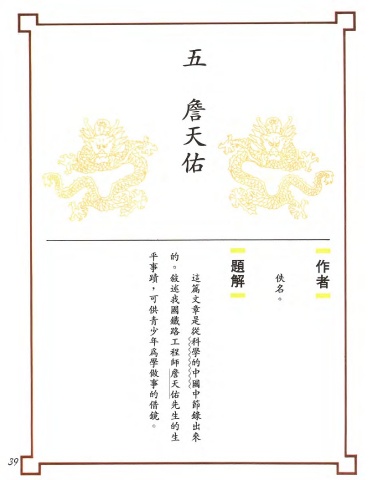 五 詹天佑
作者
佚名。
題解
這篇文章是從科學的中國中節錄出來
的。敍述我國鐵路工程師詹天佑先生的生
平事蹟，可供青少年爲學做事的借鏡。
39